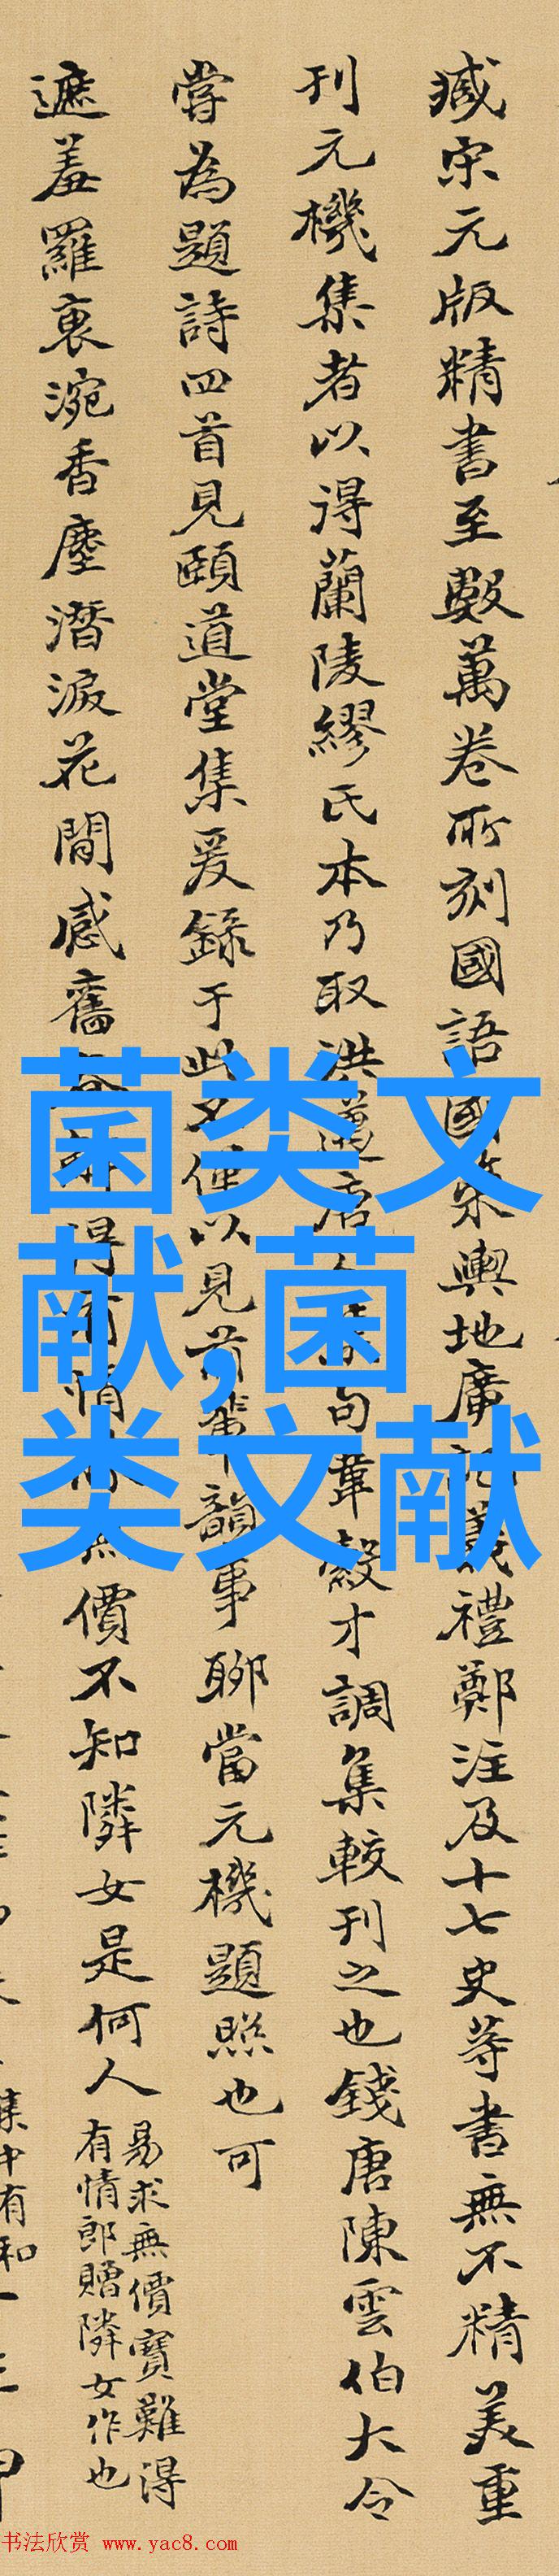 臧宋元版精書至數萬卷所刻國語國策輿地廣記義禮鄭注及十七史等書無不精美重
刊元機集者以得蘭陵繆氏本乃取洪邁唐人句韋縠才調集較刊之也錢唐陳雲伯大令
嘗為題詩四首見頤道堂集爰錄于此以見前輩韻事聊當元機題照也可
遮羞羅裏涴香塵潛淚花間感舊得情無價不知隣女是何人
易求無價寶難得
有情郎贈隣女作也
集中有和一
菌类文
献,菌
类文献
书法欣赏 www.yac8.com